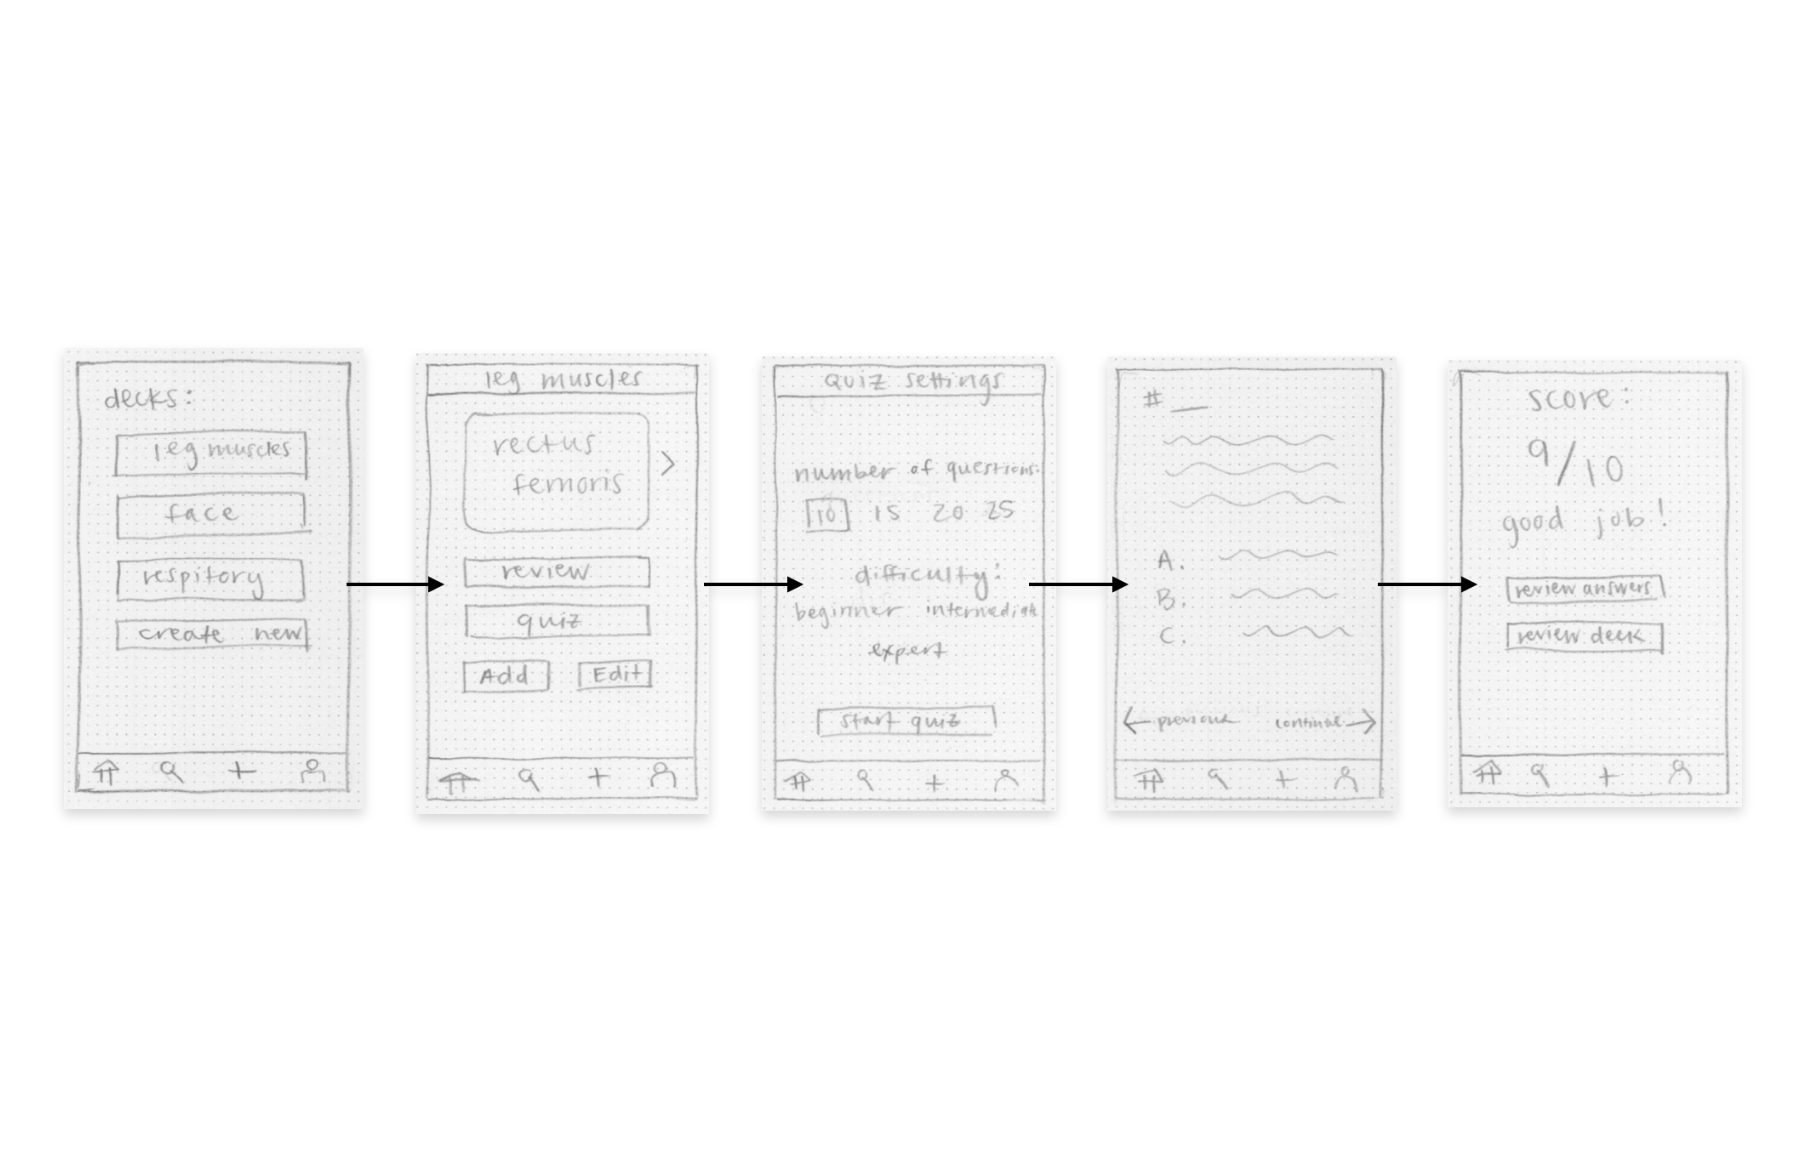 decks:
leg muscles
face
respitory
create new
leg muscles
rectus
femoris
>
review
quiz
Add Edit
Quiz settings
number of questions:
10 15 20 25
difficulty:
beginner intermediate
expert
start quiz
#
A.
B.
C.
previous continue
score:
9/10
good job!
review answers
review deck